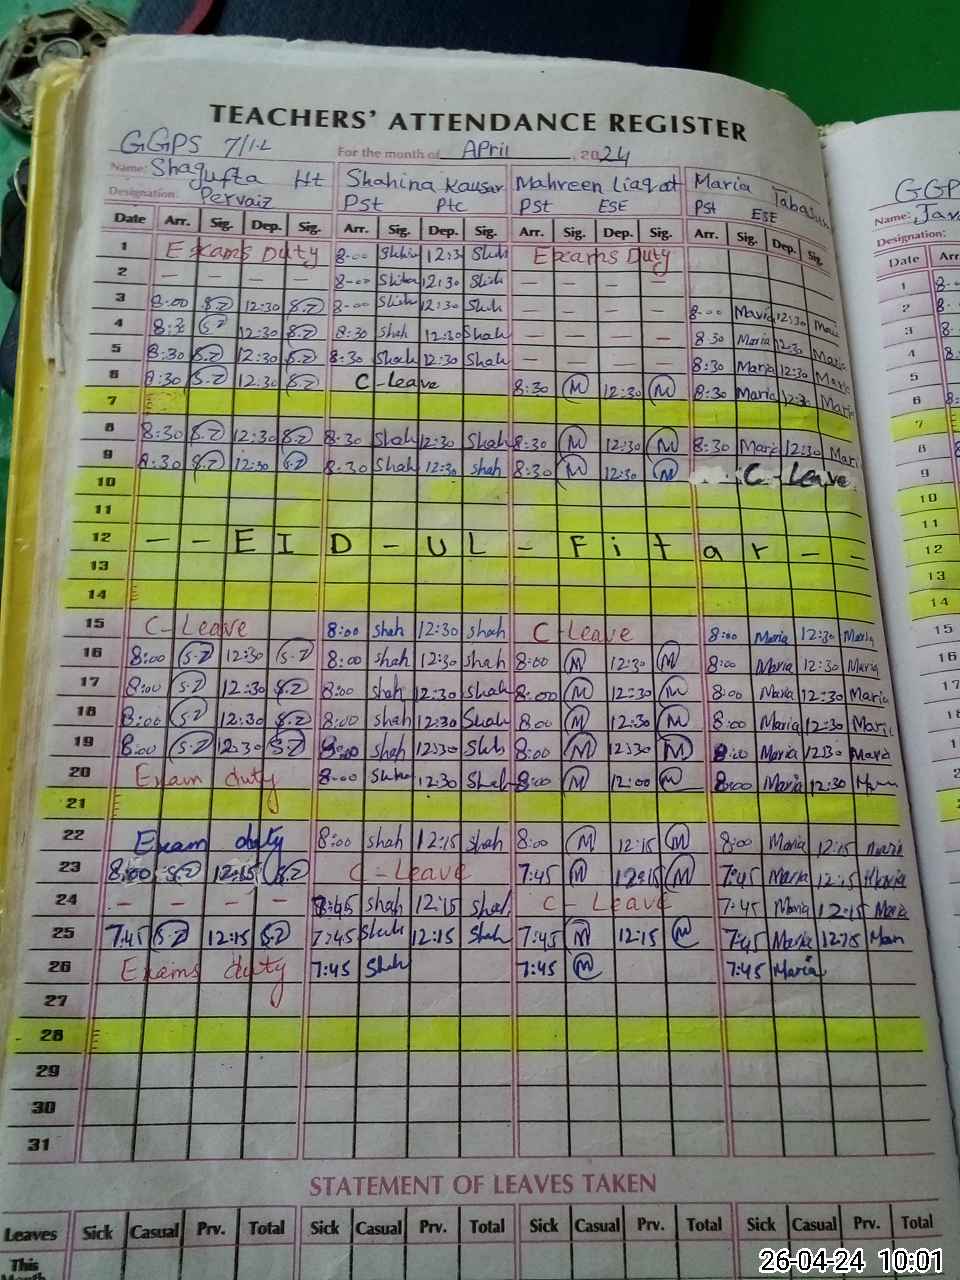 TEACHERS' ATTENDANCE REGISTER
GGPS 7/1-L For the month of April, 2024
Name: Shagufta Ht Shahina Kausar Mahreen Liaqat Maria Tabasum GGP
Designation: Pervaiz Pst Ptc Pst ESE Pst ESE Name: Java
Designation:
Date Arr. Sig. Dep. Sig. Arr. Sig. Dep. Sig. Arr. Sig. Dep. Sig. Arr. Sig. Dep. Sig. Date Arr
1 Exams Duty 8-00 12:30 Exams Duty 1 8-
2 - - - - 8-00 12:30 - - - - 2 8-
3 8:00 S.Z 12:30 S.Z 8-00 12:30 - - - - 8-00 Maria 12:30 Maria 3
4 S.Z 12:30 S.Z 8:30 Shah 12:30 Shah - - - - 8:30 Maria 12:30 Maria 4
5 8:30 S.Z 12:30 S.Z 8:30 Shah 12:30 Shah - - - - 8:30 Maria 12:30 Maria 5
6 8:30 S.Z 12:30 S.Z C-leave 8:30 M 12:30 M 8:30 Maria 12:30 Maria 6
7 7
8 8:30 S.Z 12:30 S.Z 8:30 Shah 12:30 Shah 8:30 M 12:30 M 8:30 Mari 12:30 Mari 8
9 8:30 S.Z 12:30 S.Z 8:30 Shah 12:30 shah 8:30 M 12:30 M C-Leave 9
10 10
11 11
12 - - EID-UL-Fitar - - 12
13 13
14 14
15 C-Leave 8:00 shah 12:30 shah C-Leave 8:00 Maria 12:30 Maria 15
16 8:00 S.Z 12:30 S.Z 8:00 shah 12:30 shah 8:00 M 12:30 M 8:00 Maria 12:30 Maria 16
17 8:00 S.Z 12:30 S.Z 8:00 shah 12:30 Shah 8:00 M 12:30 M 8:00 Maria 12:30 Maria 17
18 8:00 S.Z 12:30 S.Z 8:00 shah 12:30 Shah 8:00 M 12:30 M 8:00 Maria 12:30 Maria 18
19 8:00 S.Z 12:30 S.Z 8:00 shah 12:30 8:00 M 12:30 M 8:00 Maria 12:30 Maria
20 Exam duty 8-00 12:30 Shah 8:00 M 12:00 M 8:00 Maria 12:30
21
22 Exam duty 8:00 shah 12:15 shah 8:00 M 12:15 M 8:00 Maria 12:15 Maria
23 8:00 S.Z 12:15 S.Z C-Leave 7:45 M 12:15 M 7:45 Maria 12:15 Maria
24 - - - - 7:45 shah 12:15 shah C-Leave 7:45 Maria 12:15 Maria
25 7:45 S.Z 12:15 S.Z 7:45 Shah 12:15 Shah 7:45 M 12:15 M 7:45 Maria 12:15
26 Exams duty 7:45 Shah 7:45 M 7:45 Maria
27
28
29
30
31
STATEMENT OF LEAVES TAKEN
Leaves Sick Casual Prv. Total Sick Casual Prv. Total Sick Casual Prv. Total Sick Casual Prv. Total
This
Month
26-04-24 10:01